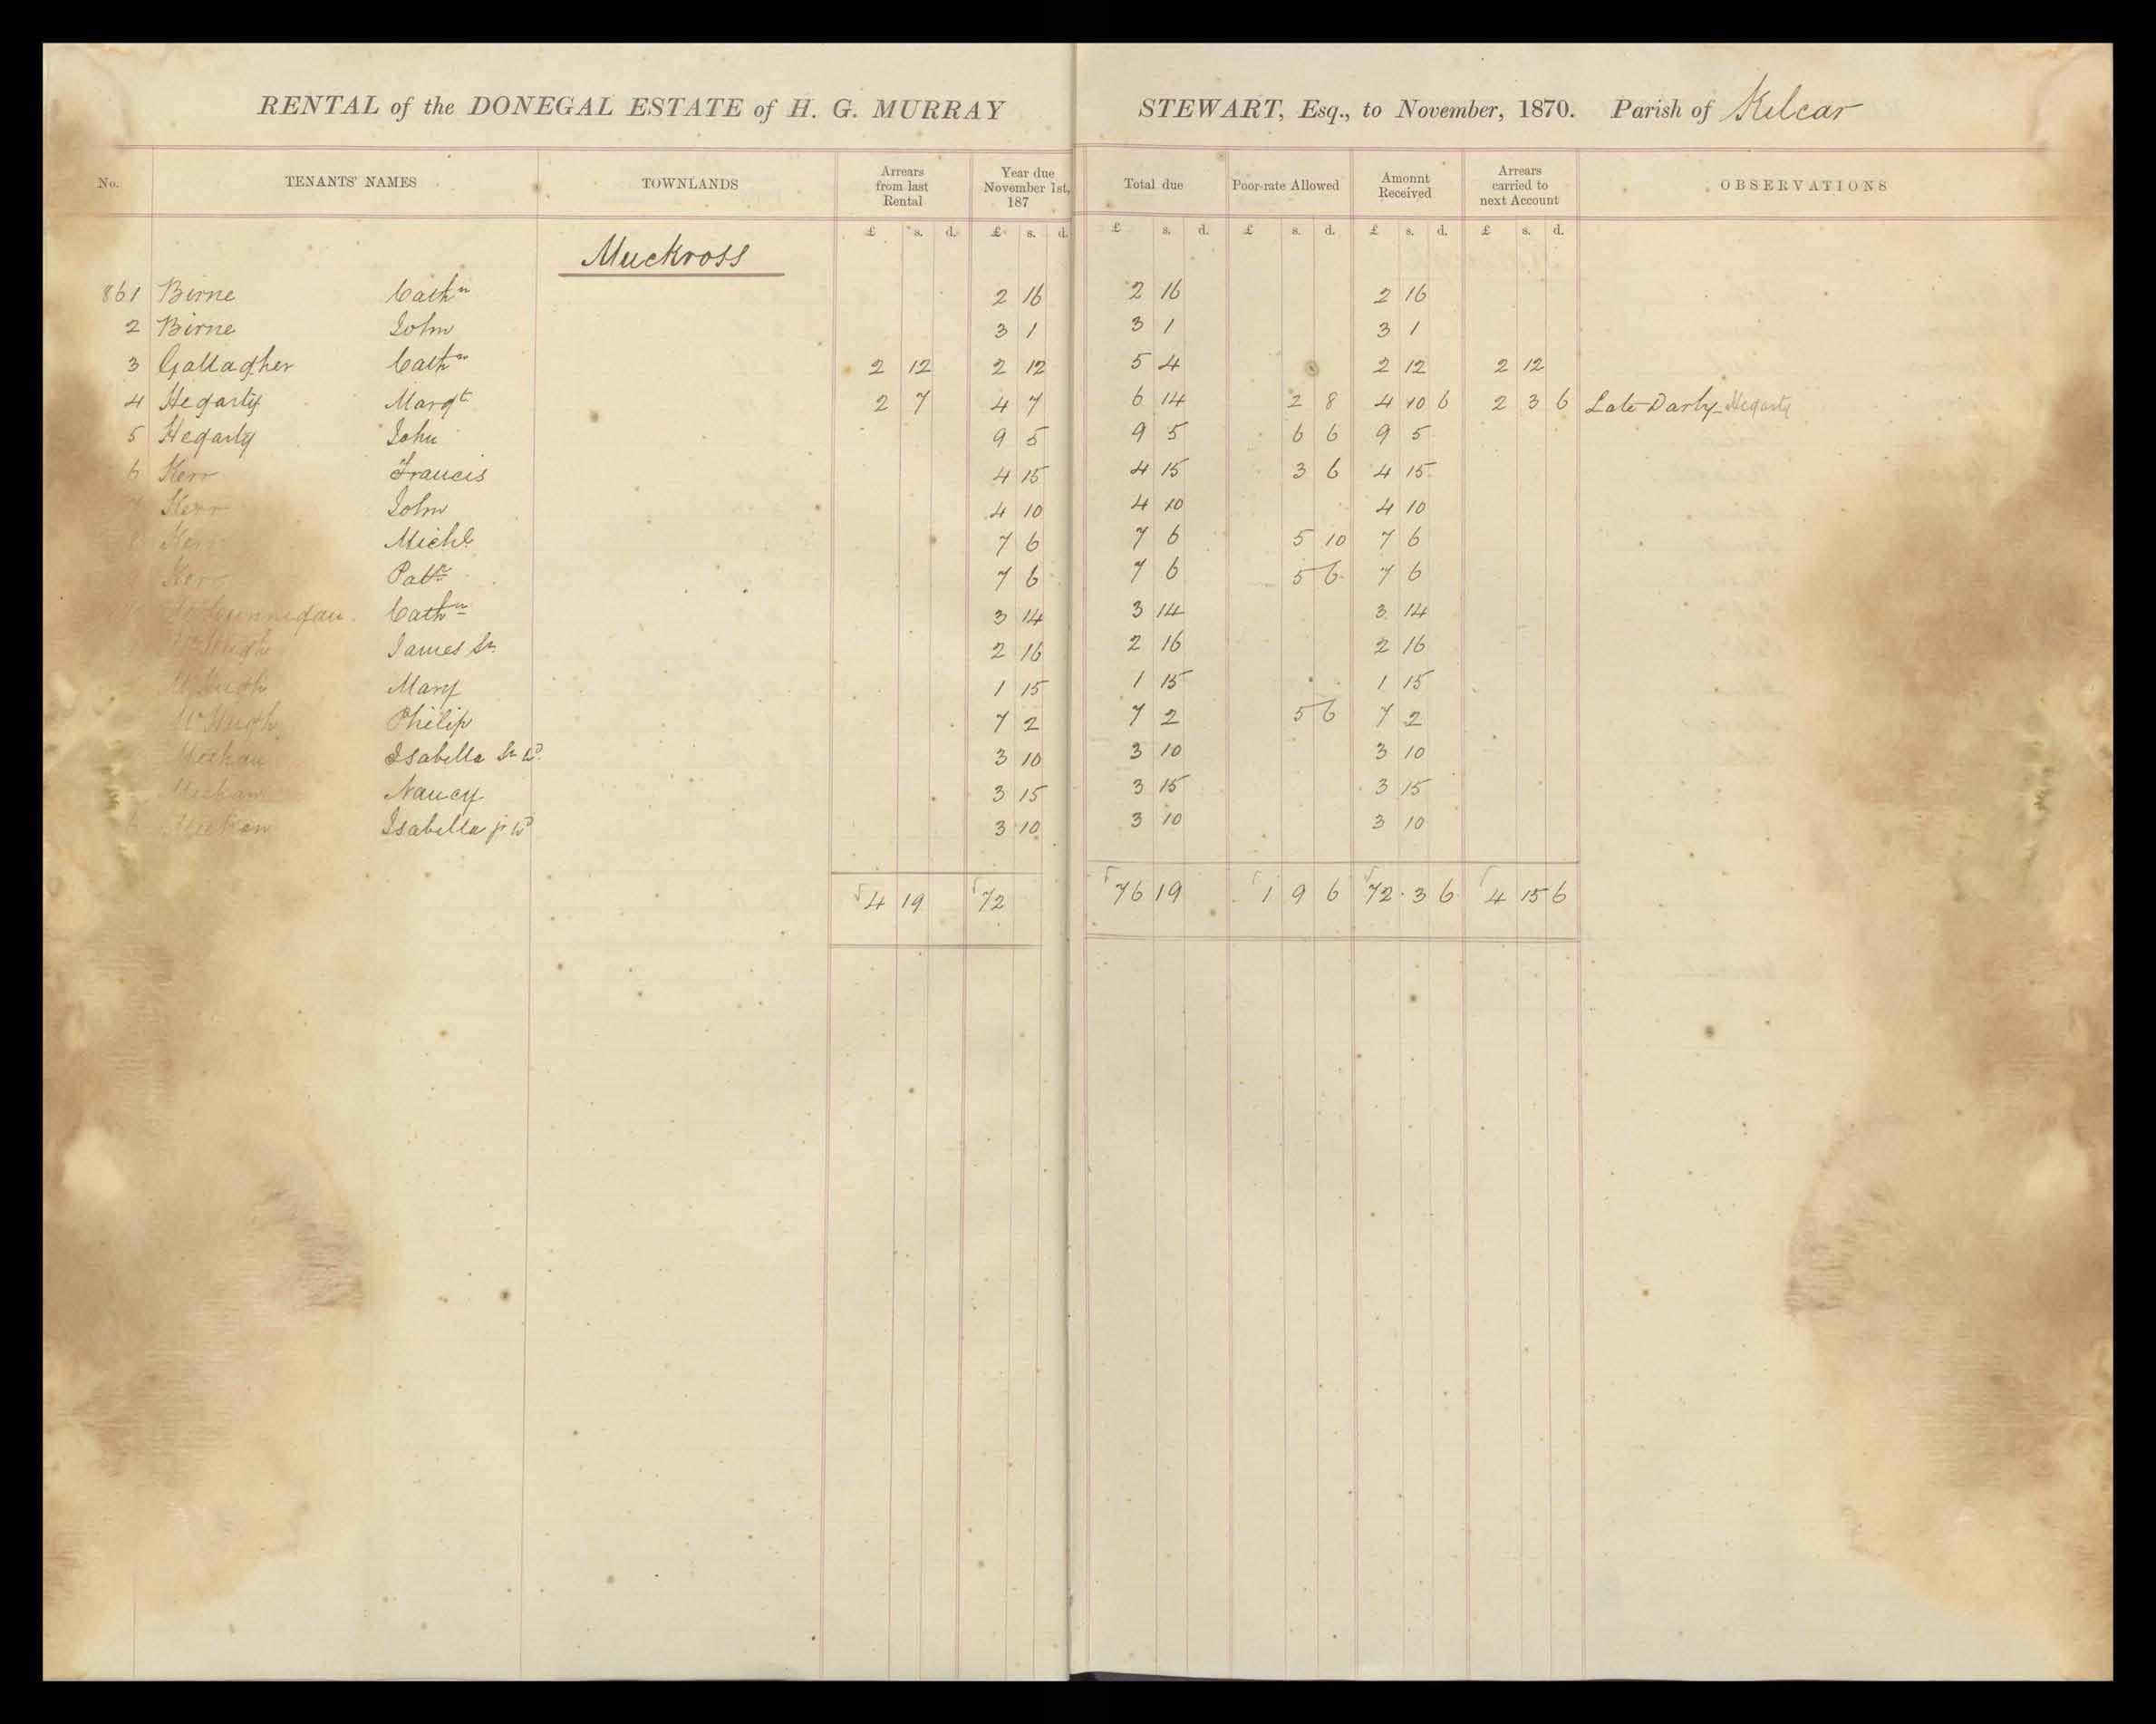 RENTAL of the DONEGAL ESTATE of H. G. MURRAY STEWART, Esq., to November, 1870. Parish of Kilcar
No. TENANTS' NAMES TOWNLANDS Arrears from last Rental Year due November 1st, 187 Total due Poor-rate Allowed Amonnt Received Arrears carried to next Account OBSERVATIONS
£ s. d. £ s. d. £ s. d. £ s. d. £ s. d. £ s. d.
Muckross
861 Birne Cathn 2 16 2 16 2 16
2 Birne John 3 1 3 1 3 1
3 Gallagher Cathn 2 12 2 12 5 4 2 12 2 12
4 Hegarty Margt 2 7 4 7 6 14 2 8 4 10 6 2 3 6 Late Darby Hegarty
5 Hegarty John 9 5 9 5 6 6 9 5
6 Kerr Francis 4 15 4 15 3 6 4 15
7 Kerr John 4 10 4 10 4 10
Kerr Michl 7 6 7 6 5 10 7 6
9 Kerr Patk 7 6 7 6 5 6 7 6
Cathn 3 14 3 14 3 14
McHugh James Sr 2 16 2 16 2 16
McHugh Mary 1 15 1 15 1 15
McHugh Philip 7 2 7 2 5 6 7 2
Meehan Isabella Sr Wd 3 10 3 10 3 10
Meehan Nancy 3 15 3 15 3 15
6 Meehan Isabella jr Wd 3 10 3 10 3 10
4 19 72 76 19 1 9 6 72 3 6 4 15 6